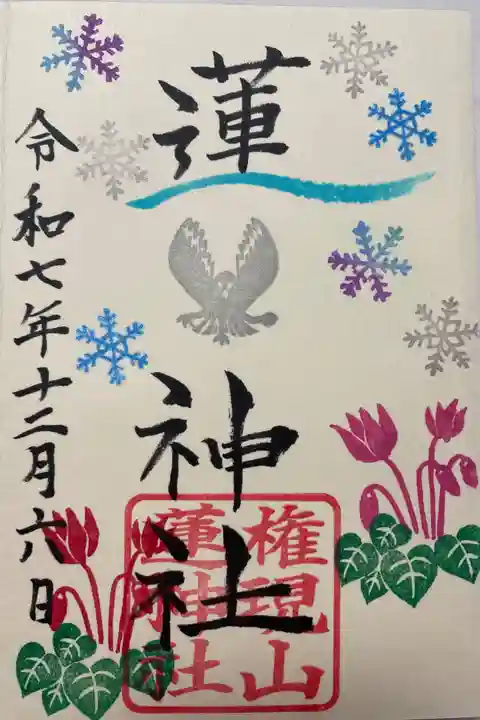 蓮
神社
権現山
蓮神社
令和七年十二月六日